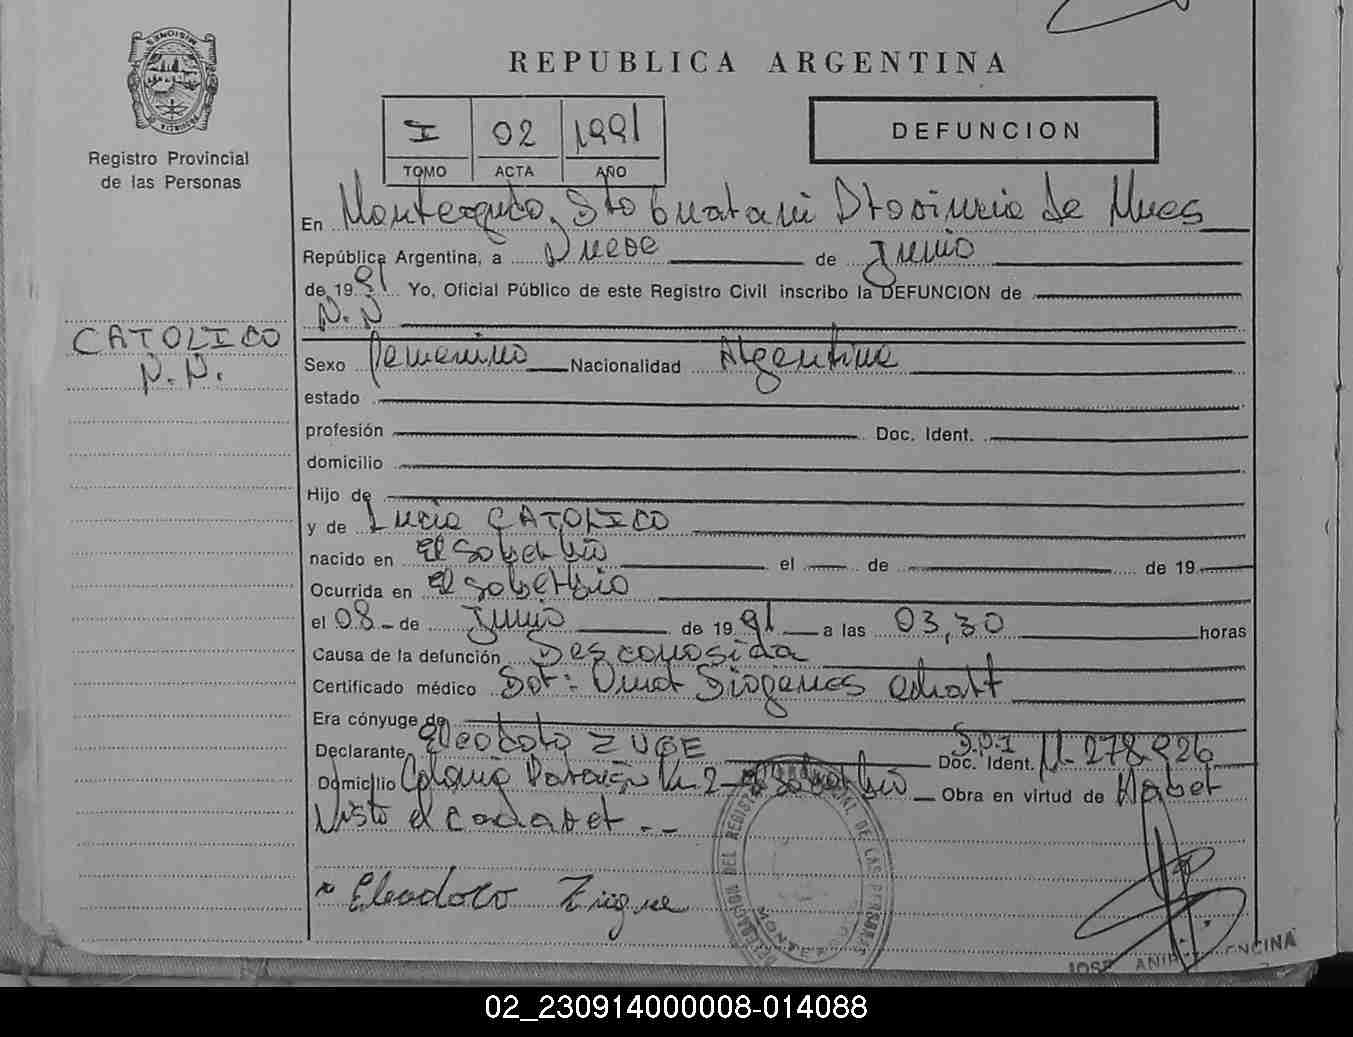 REPUBLICA ARGENTINA
MISIONES
Registro Provincial
de las Personas
I 02 1991
TOMO ACTA AÑO
DEFUNCION
En Monteagudo, Gto Guarani Provincia de Mnes
República Argentina, a Nueve de Junio
de 1991 Yo, Oficial Público de este Registro Civil inscribo la DEFUNCION de
N.N
CATOLICO
N.N.
Sexo Femenino Nacionalidad Argentina
estado
profesión Doc. Ident.
domicilio
Hijo de
y de Lucia CATOLICO
nacido en El Soberbio el de de 19
Ocurrida en El Soberbio
el 08 de Junio de 1991 a las 03,30 horas
Causa de la defunción Desconosida
Certificado médico Dot: Omar Diogenes
Era cónyuge de
Declarante Eleodoro ZUGE Doc. Ident. M. 278926
Domicilio Colonia Km 2 El Soberbio Obra en virtud de Haber
Visto el Cadaver . --
Eleodoro Zuge
DELEGACION DEL REGISTRO PROVINCIAL DE LAS PERSONAS
MONTEAGUDO
JOSE ENCINA
02_230914000008-014088